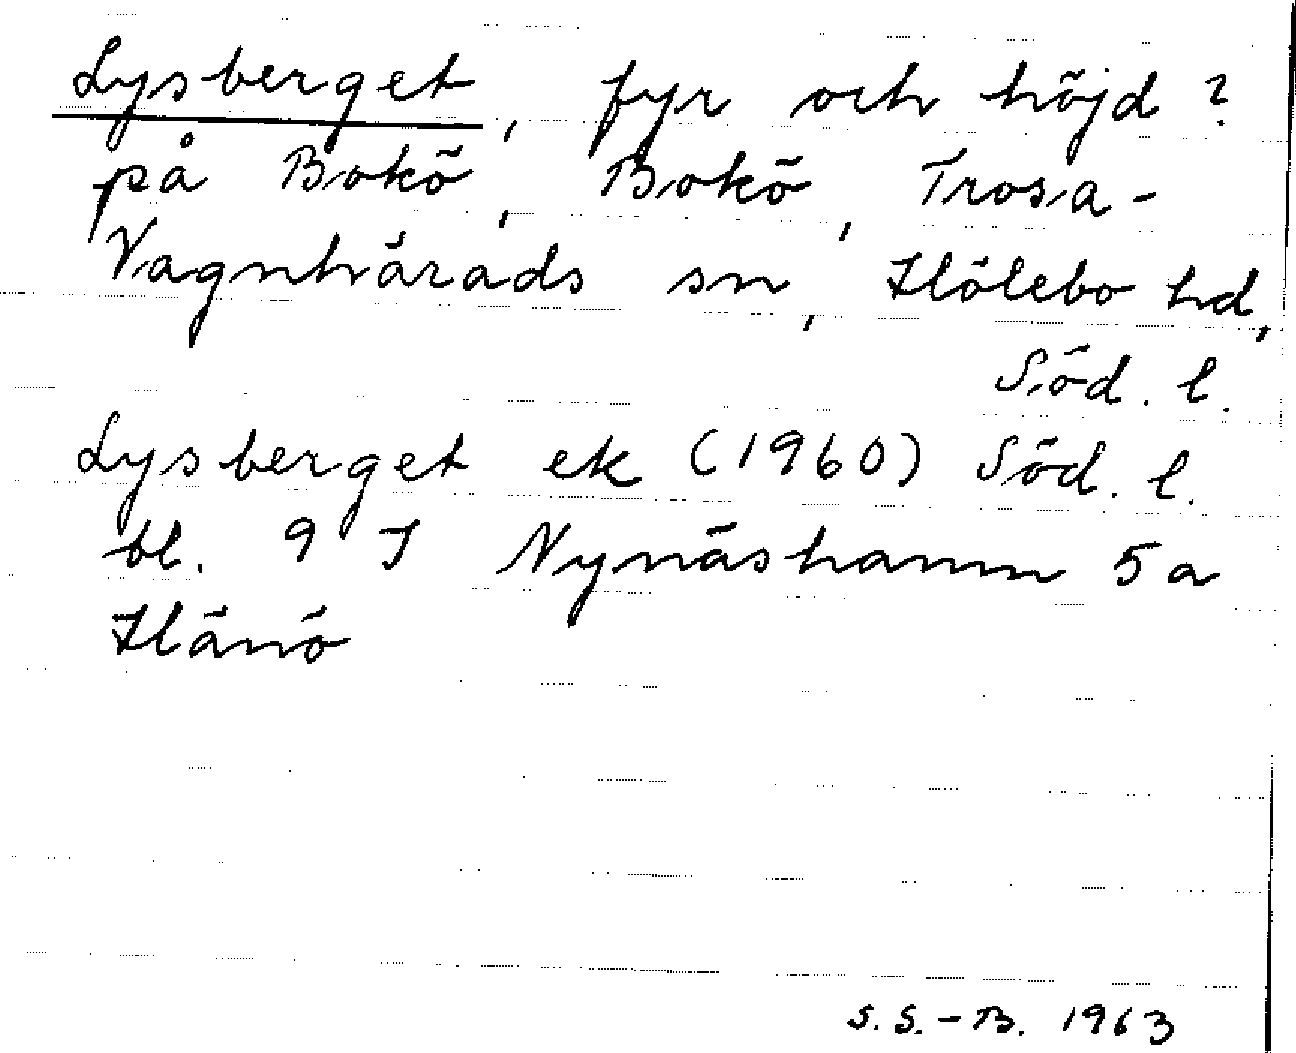 Lysberget, fyr och höjd?
på Bokö, Bokö, Trosa-
Vagnhärads sn, Hölebo hd,
Söd. l.
Lysberget ek (1960) Söd. l.
bl. 9 I Nynäshamn 5 a
Hånö
S.S.-B. 1963